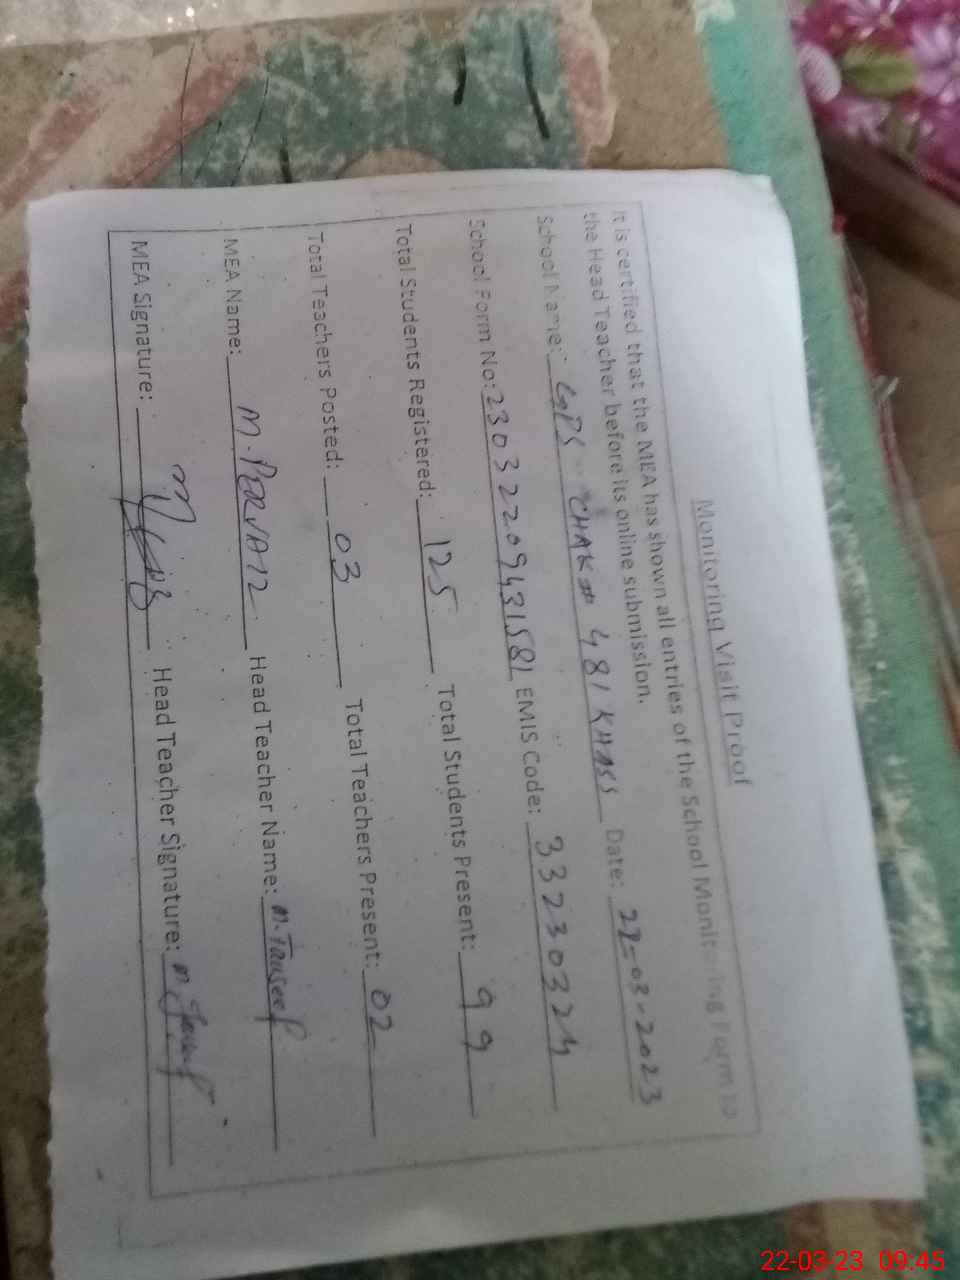 Monitoring Visit Proof
It is certified that the MEA has shown all entries of the School Monitoring Form to
the Head Teacher before its online submission.
School Name: GPS CHAK # 481 KHAS Date: 22-03-2023
School Form No: 2303220943 1581 EMIS Code: 33230324
Total Students Registered: 125 Total Students Present: 99
Total Teachers Posted: 03 Total Teachers Present: 02
MEA Name: M. PERVAIZ Head Teacher Name: M. Tauseef
MEA Signature: Head Teacher Signature:
22-03-23 09:45